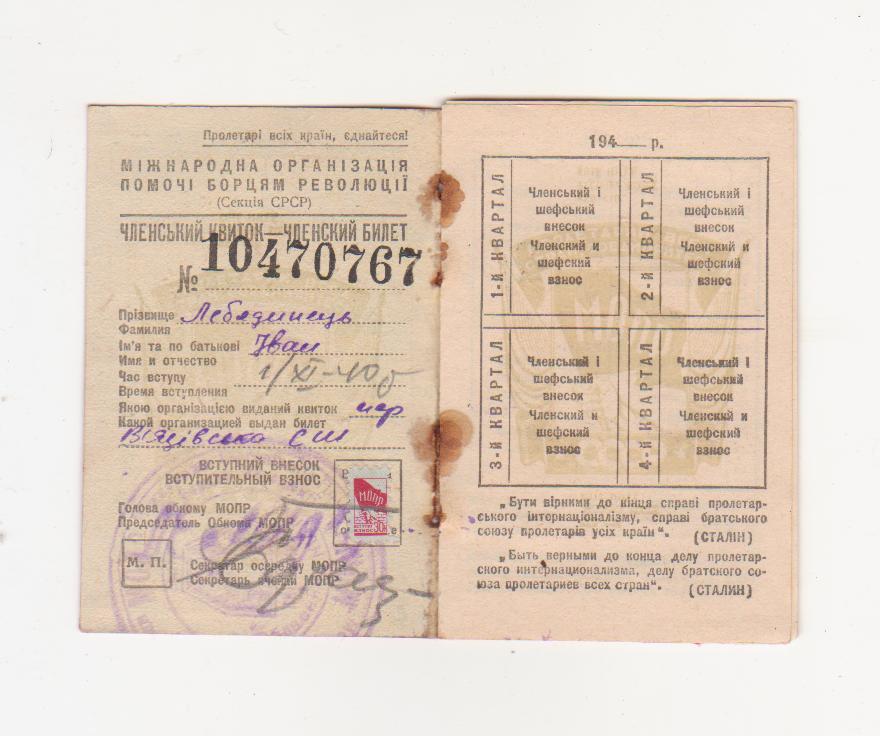 Пролетарі всіх країн, єднайтеся!
МІЖНАРОДНА ОРГАНІЗАЦІЯ
ПОМОЧІ БОРЦЯМ РЕВОЛЮЦІЇ
(Секція СРСР)
ЧЛЕНСЬКИЙ КВИТОК—ЧЛЕНСКИЙ БИЛЕТ
№ 10470767
Прізвище Лебединець
Фамилия
Ім'я та по батькові Іван
Имя и отчество
Час вступу 1/XI-40
Время вступления
Якою організацією виданий квиток
Какой организацией выдан билет
СШ
ВСТУПНИЙ ВНЕСОК
ВСТУПИТЕЛЬНЫЙ ВЗНОС
МОПР
30к
Голова обкому МОПР
Председатель Обкома МОПР
М. П.
Секретар осередку МОПР
Секретарь ячейки МОПР
194 р.
1-й КВАРТАЛ
Членський і
шефський
внесок
Членский и
шефский
взнос
2-й КВАРТАЛ
Членський і
шефський
внесок
Членский и
шефский
взнос
3-й КВАРТАЛ
Членський і
шефський
внесок
Членский и
шефский
взнос
4-й КВАРТАЛ
Членський і
шефський
внесок
Членский и
шефский
взнос
„Бути вірними до кінця справі пролетар-
ського інтернаціоналізму, справі братського
союзу пролетарів усіх країн“. (СТАЛІН)
„Быть верными до конца делу пролетар-
ского интернационализма, делу братского со-
юза пролетариев всех стран“. (СТАЛИН)